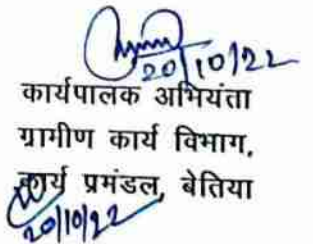 20/10/22
कार्यपालक अभियंता
ग्रामीण कार्य विभाग,
कार्य प्रमंडल, बेतिया
20/10/22